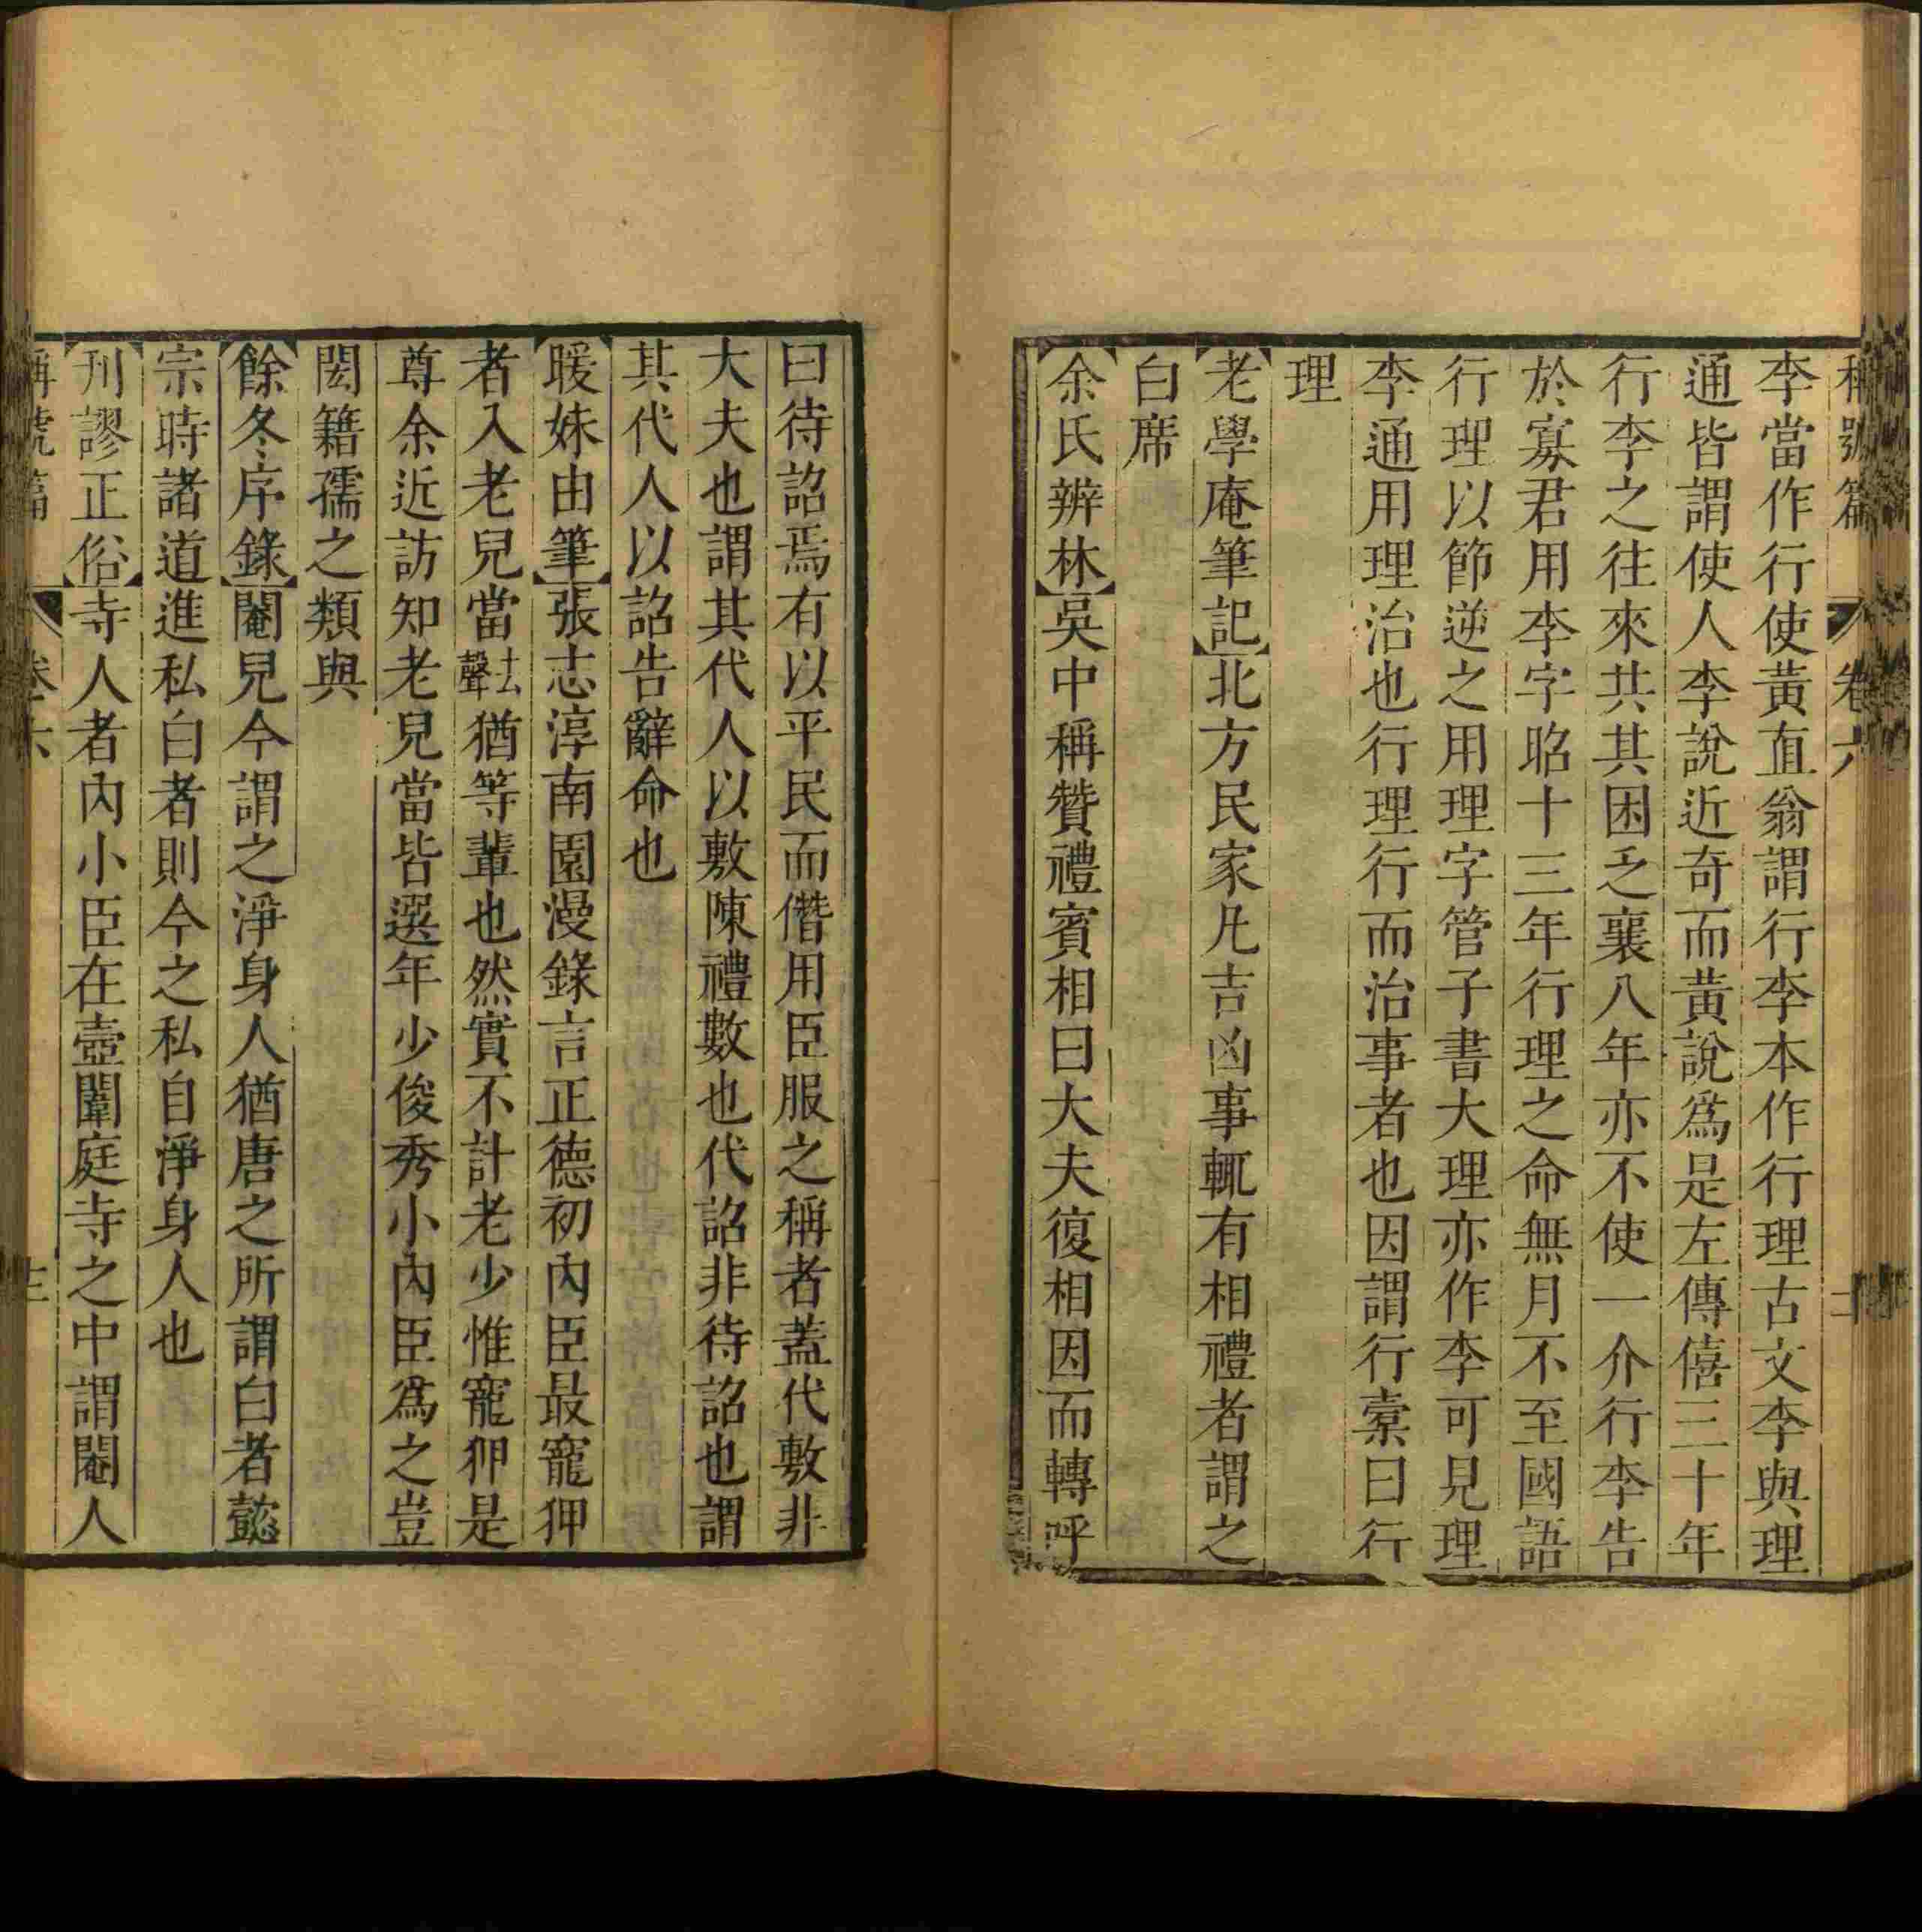 稱號篇 卷六 二
李當作行使黃直翁謂行李本作行理古文李與理
通皆謂使人李說近奇而黃說為是左傳僖三十年
行李之往來共其困乏襄八年亦不使一介行李告
於寡君用李字昭十三年行理之命無月不至國語
行理以節逆之用理字管子書大理亦作李可見理
李通用理治也行理行而治事者也因謂行橐曰行
理
【老學庵筆記】北方民家凡吉凶事輒有相禮者謂之
白席
【余氏辨林】吳中稱贊禮賓相曰大夫復相因而轉呼
曰待詔焉有以平民而僭用臣服之稱者蓋代敷非
大夫也謂其代人以敷陳禮數也代詔非待詔也謂
其代人以詔告辭命也
【暖姝由筆】張志淳南園漫錄言正德初內臣最寵狎
者入老兒當去聲猶等輩也然實不計老少惟寵狎是
尊余近訪知老兒當皆選年少俊秀小內臣為之豈
閎籍孺之類與
【餘冬序錄】閹兒今謂之淨身人猶唐之所謂白者懿
宗時諸道進私白者則今之私自淨身人也
【刋謬正俗】寺人者內小臣在壼闈庭寺之中謂閹人
稱號篇 卷六